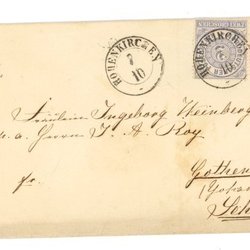 HOHENKIRCHEN
7
10
HOHENKIRCHEN
7
10
Fräulein Ingeborg Weinberg
p. a. Herrn J. A. Roy
fr.
Gothen